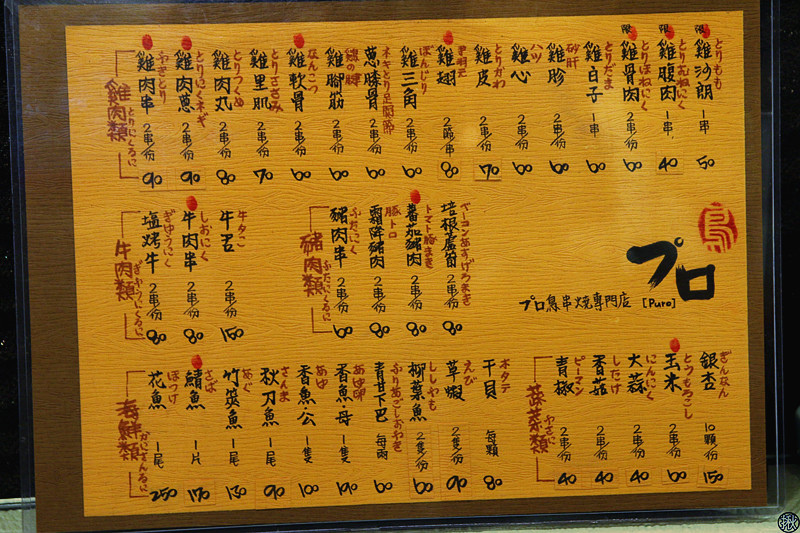 雞肉類
とりにくるに
雞肉串 やきとり 2串/份 90
雞肉蔥 とりにくネギ 2串/份 90
雞肉丸 とりつくね 2串/份 80
雞里肌 とりささみ 2串/份 70
雞軟骨 なんこつ 2串/份 60
雞腳筋 2串/份 60
蔥膝骨 ネギとり足関節 2串/份 60
雞三角 ぼんじり 2串/份 60
雞翅 手羽先 2串/份 80
雞皮 とりかわ 2串/份 70
雞心 ハツ 2串/份 60
雞胗 砂肝 2串/份 60
雞白子 とりだま 一串 60
限 雞骨肉 とりほねにく 2串/份 60
限 雞腹肉 とりむねにく 一串 40
限 雞沙朗 とりもも 一串 50
牛肉類
ぎゅうにくるに
塩烤牛 ぎゅうにく 2串/份 80
牛肉串 しおにく 2串/份 80
牛舌 牛タン 2串/份 150
豬肉類
ぶたにくるに
豬肉串 ぶたにく 2串/份 60
霜降豬肉 豚トロ 2串/份 80
蕃茄豬肉 トマト豚まき 2串/份 80
培根蘆筍 ベーコンあすぱらまき 2串/份 80
鳥
プロ
プロ鳥串燒專門店 [Puro]
海鮮類
かいさんるに
花魚 ほっけ 一尾 250
鯖魚 さば 一片 170
竹筴魚 あじ 一尾 130
秋刀魚 さんま 一尾 90
香魚·公 あゆ 一隻 100
香魚·母 あゆ卵 一隻 190
青甘下巴 ぶりあごしおやき 每兩 60
柳葉魚 ししゃも 2隻/份 60
草蝦 えび 2隻/份 90
干貝 ホタテ 每顆 80
蔬菜類
やさい
青椒 ピーマン 2串/份 40
香菇 しいたけ 2串/份 40
大蒜 にんにく 2串/份 40
玉米 とうもろこし 2串/份 60
銀杏 ぎんなん 10顆/份 150